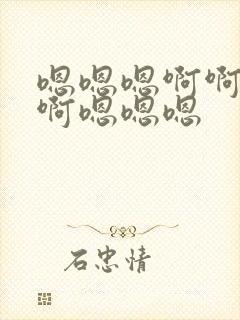 嗯嗯嗯啊啊
啊嗯嗯嗯
石忠情